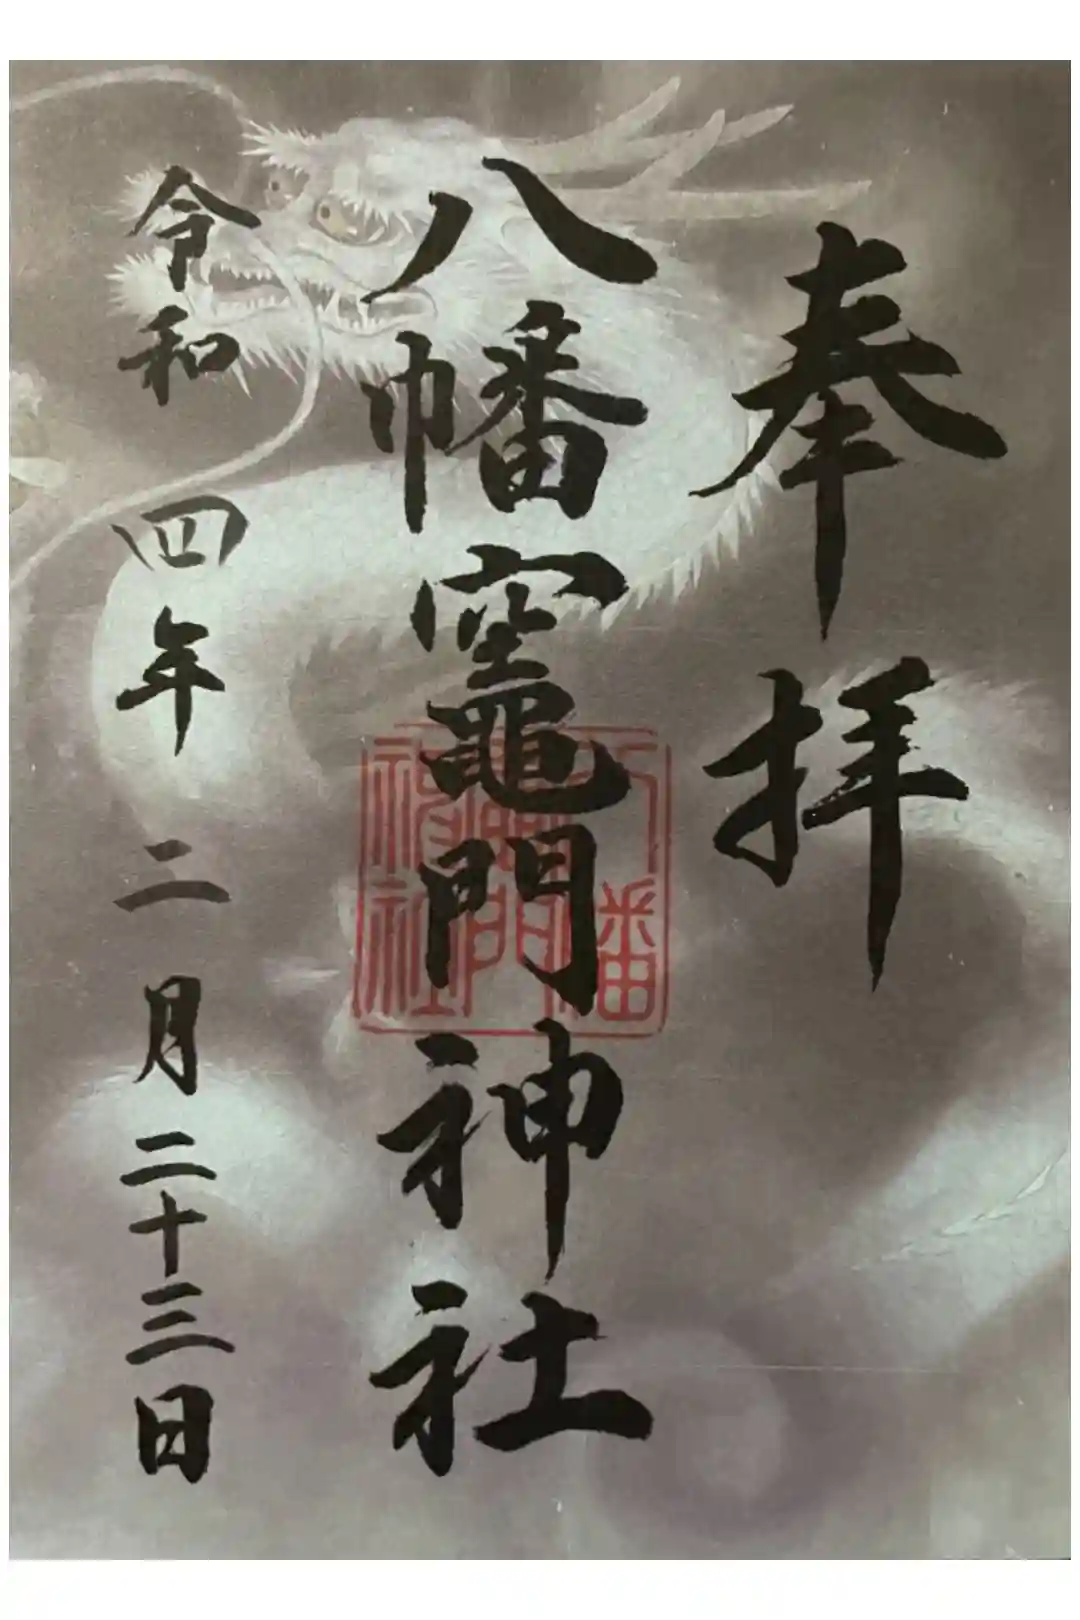 奉拝
八幡竈門神社
八幡
竈門
神社
令和四年二月二十三日